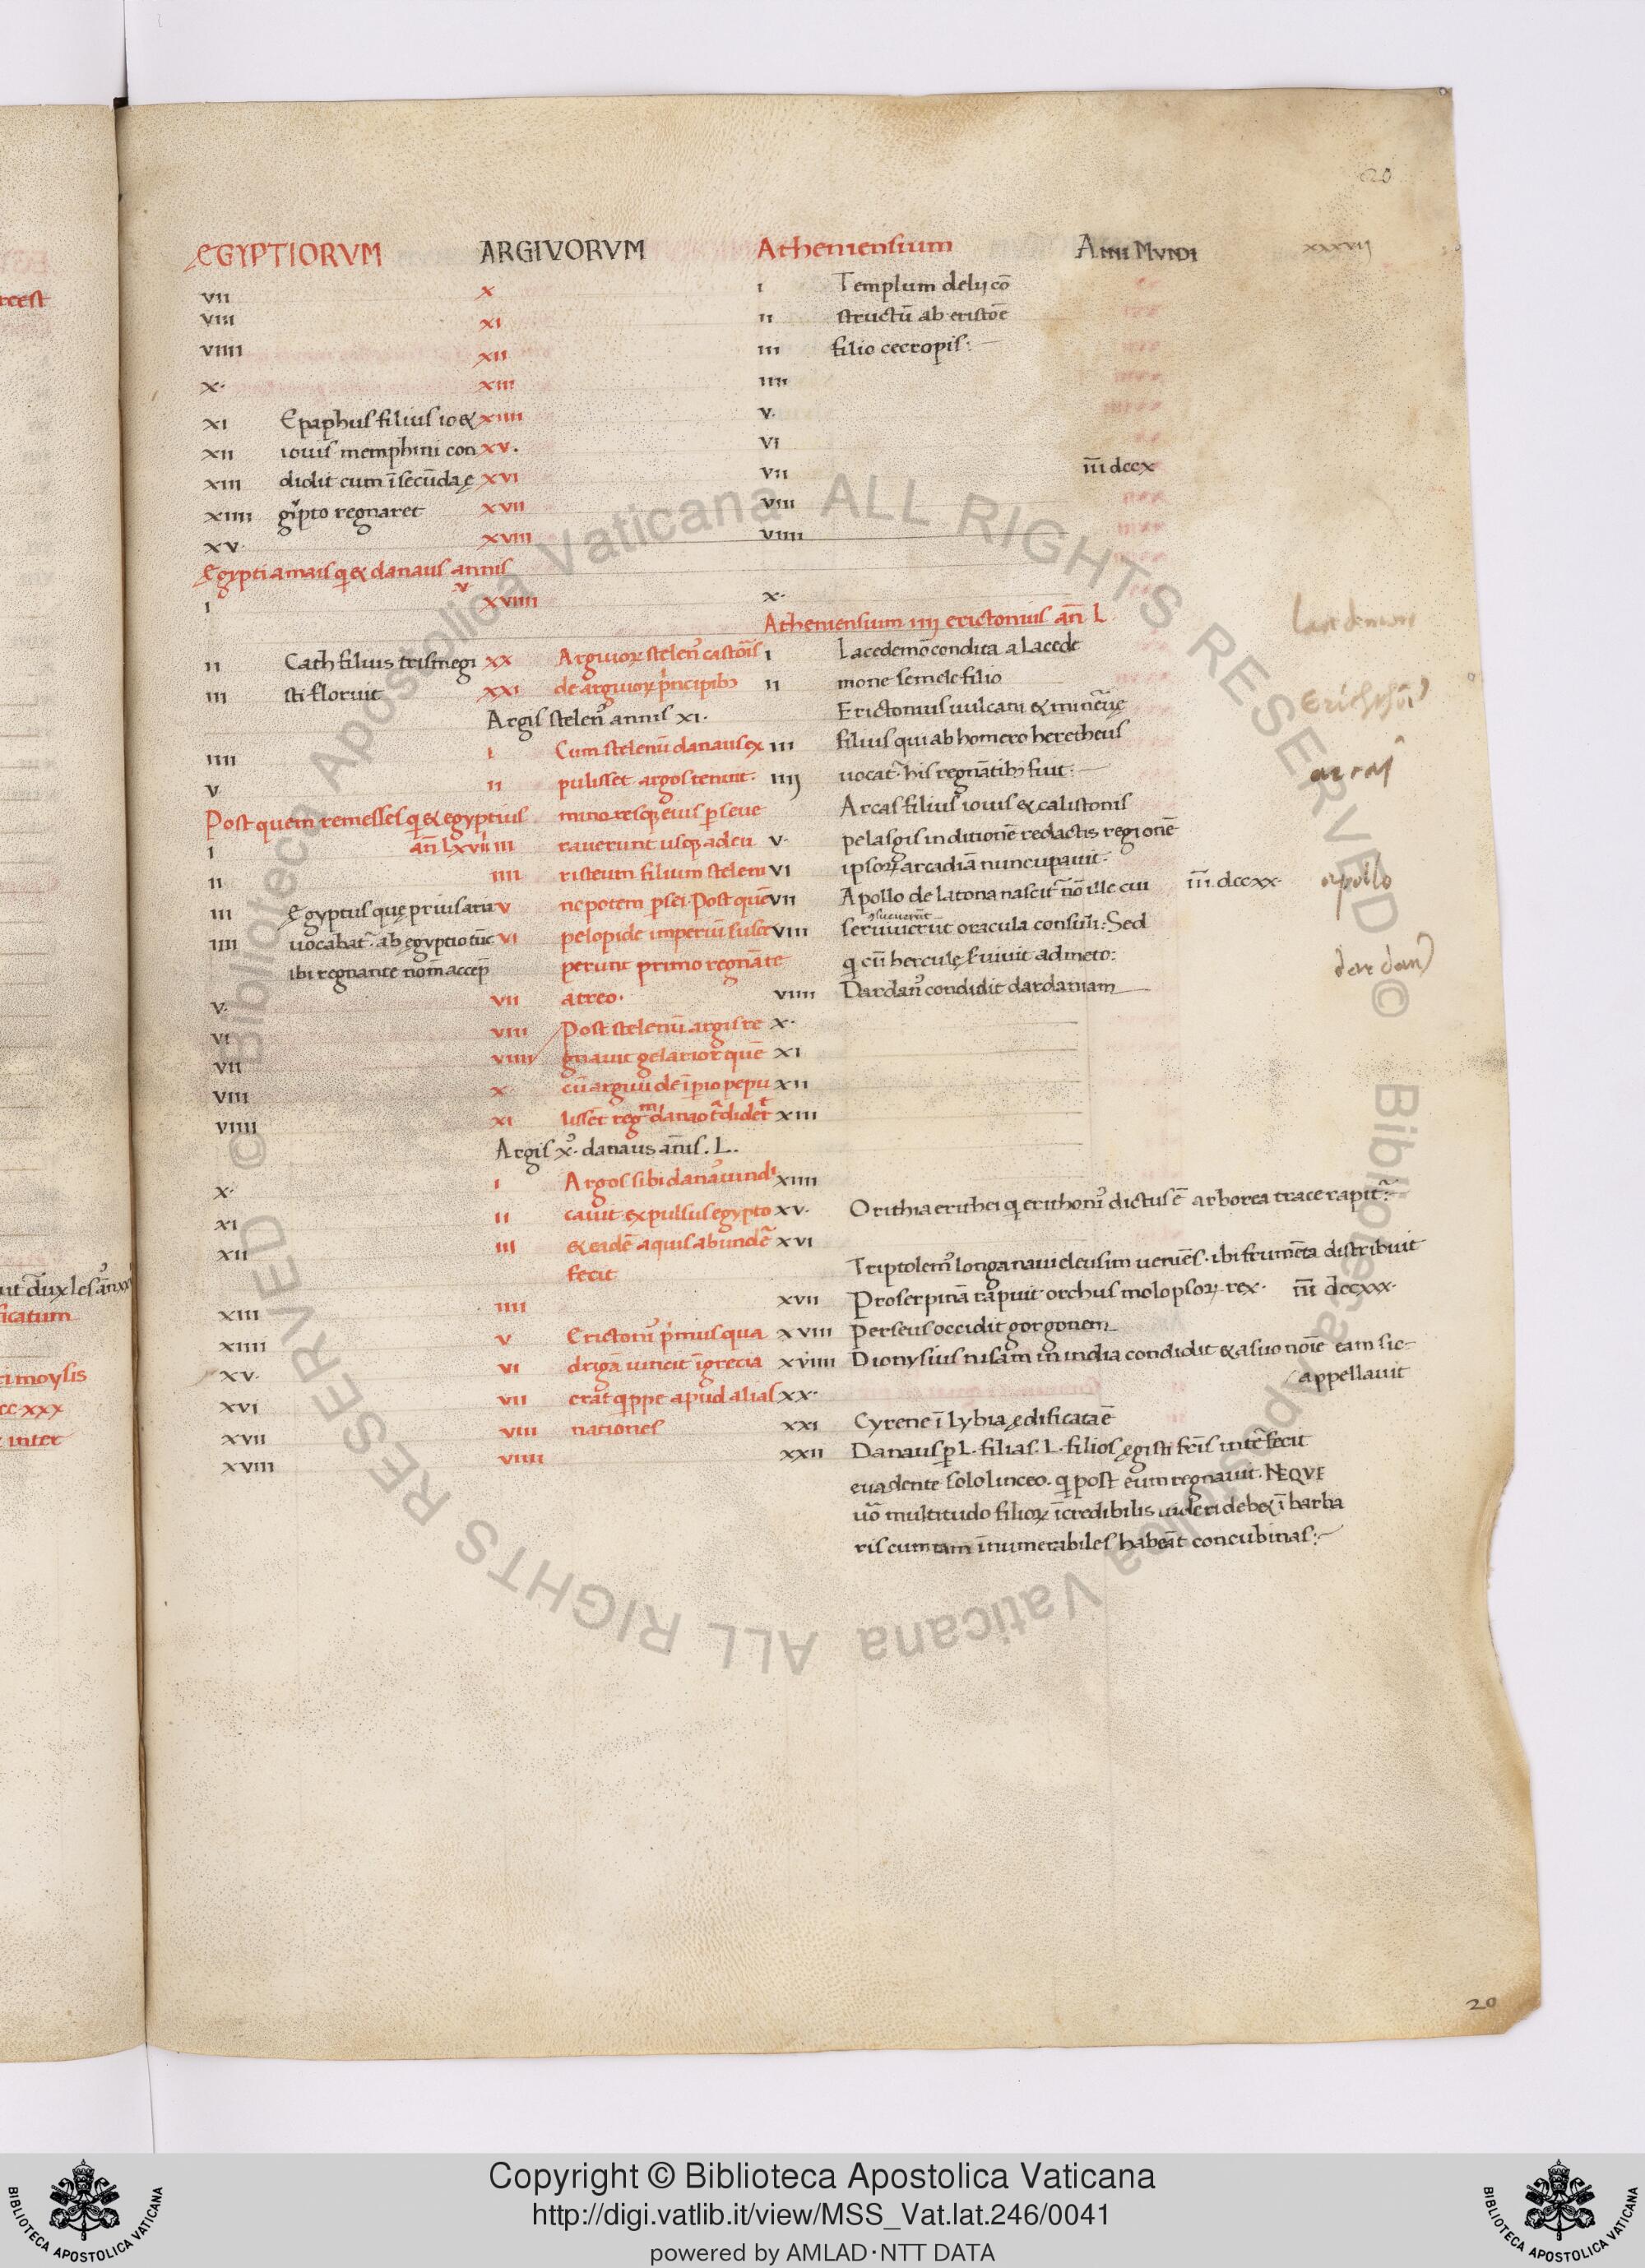 20
EGYPTIORVM ARGIVORVM Atheniensium Anni Mundi xxxvij
vii x i Templum delij cō
viii xi ii structū ab eristōe
viiii xii iii filio cecropis:
x· xiii iiii
xi Epaphus filius io & xiiii v·
xii iouis memphini con xv· vi
xiii didit cum ī secūda ę xvi vii iii dccx
xiiii gipto regnaret xvii viii
xv· xviii viiii
Egypti amais q & danaus annis
v
i xviiii x·
Atheniensium iiij erictonius añ L
ii Cath filius trismegi xx Argiuoꝝ stelen' castōis i Lacedemō condita a Lacede
iii sti floruit xxi de argiuoꝝ pncipib; ii mone semele filio
Argis stelen' annis xi· Erictonius uulcani & mineruę
iiii i Cum stelenū danaus ex iii filius qui ab homero heretheus
v ii pulisset argos tenuit· iiij uocat' his regnātib; fuit:
Post quem remesses q & egyptius minoresq; eius pseue Arcas filius iouis & calistonis
i añ lxviii iii rauerunt usq; ad eu v· pelasgis in ditionē redactis regionē
ii iiii risteum filium steleni vi ipsoꝝ arcadiā nuncupauit·
iii Egyptus quę prius aria v nepotem psei· Post quē vii Apollo de latona nascit' nō ille cui iii· dccxx· apollo
iiii uocabat'· ab egyptio tūc vi pelopide imperiū susce viii seruuierūt oracula consuli: Sed
ibi regnante nom̄ accep̄ perunt primo regnāte q cū herculę fuiuit admeto:
v· vii atreo· viiii Dardan' condidit dardaniam
vi viii Post stelenū argis re x·
vii viiii gnauit gelanor quē xi
viii x cū argiui de ipio pepu xii
viiii xi lisset reg danao tdider xiii
Argis x'· danaus añis· L·
x· i Argos sibi danau' uindi xiiii
xi ii cauit expulsus egypto xv· Orithia erithei q erithoni' dictus ē arborea trace rapit'·
xii iii & eadē aquis abundē xvi
fecit Triptolem' longa naui eleusim ueniēs· ibi frumēta distribuit
xiii iiii xvii Proserpinā rapuit orchus molopsoꝝ rex· iii dccxxx·
xiiii v Erictoni' pmus qua xviii Perseus occidit gorgonem
xv· vi drigā iunxit ī grecia xviiii Dionysius nisam in india condidit & a suo noīe eam sic
xvi vii erat q'ppe apud alias xx· appellauit
xvii viii nationes xxi Cyrene ī lybia ędificata ē
xviii viiii xxii Danaus p L· filias· L· filios ęgisti fris interfecit
euadente solo linceo· q post eum regnauit· NEQVE
uō multitudo filioꝝ īcredibilis uideri deb& ī barba
ris cum tam īnumerabiles habeāt concubinas:
20
Copyright © Biblioteca Apostolica Vaticana
http://digi.vatlib.it/view/MSS_Vat.lat.246/0041
powered by AMLAD·NTT DATA
BIBLIOTECA APOSTOLICA VATICANA
BIBLIOTECA APOSTOLICA VATICANA